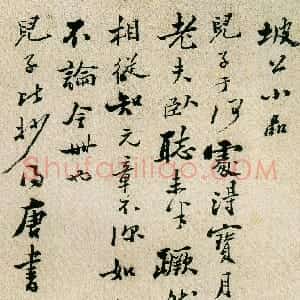 坡公小品
兒子于何處得寶月
老夫臥聽未半蹶然
相從知元章不深如
不論今世也
兒子比抄得唐書
Shufaziliao.com